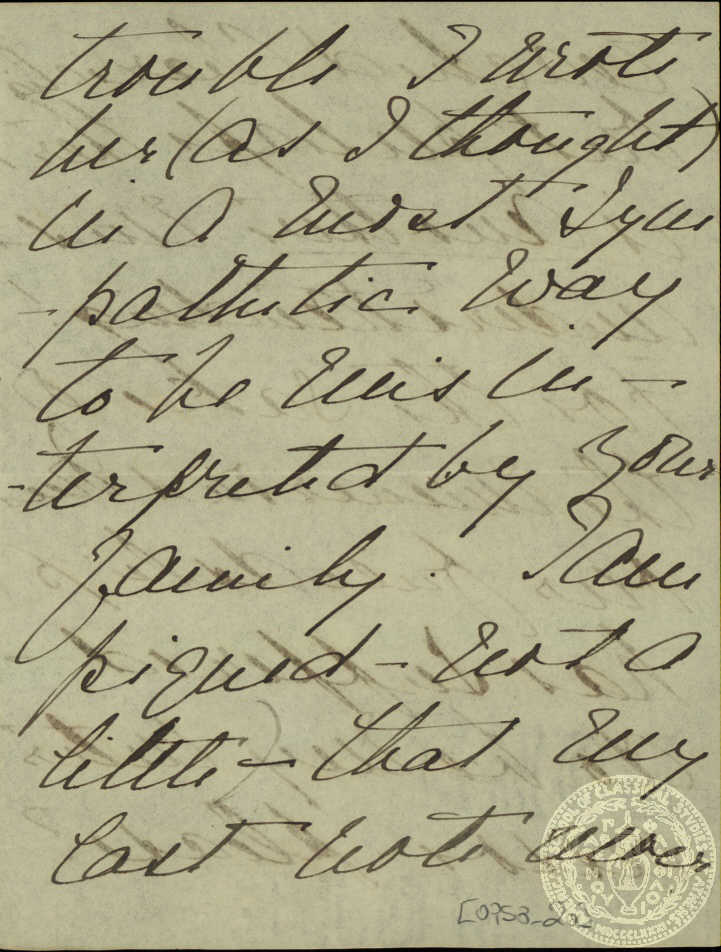 trouble I wrote
her (as I thought)
in a most sym
-pathetic way
to be mis in-
-terpreted by your
family. I am
piqued - not a
little - that my
last note never
[0753-2]